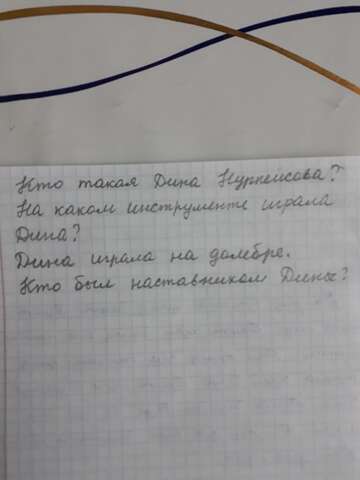 Кто такая Дина Нурпеисова?
На каком инструменте играла
Дина?
Дина играла на домбре.
Кто был наставником Дины?